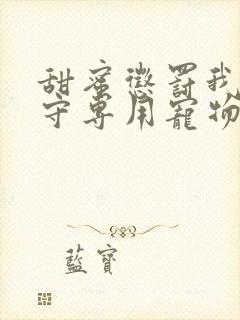 甜蜜懲罰我
守專用寵物
藍寶